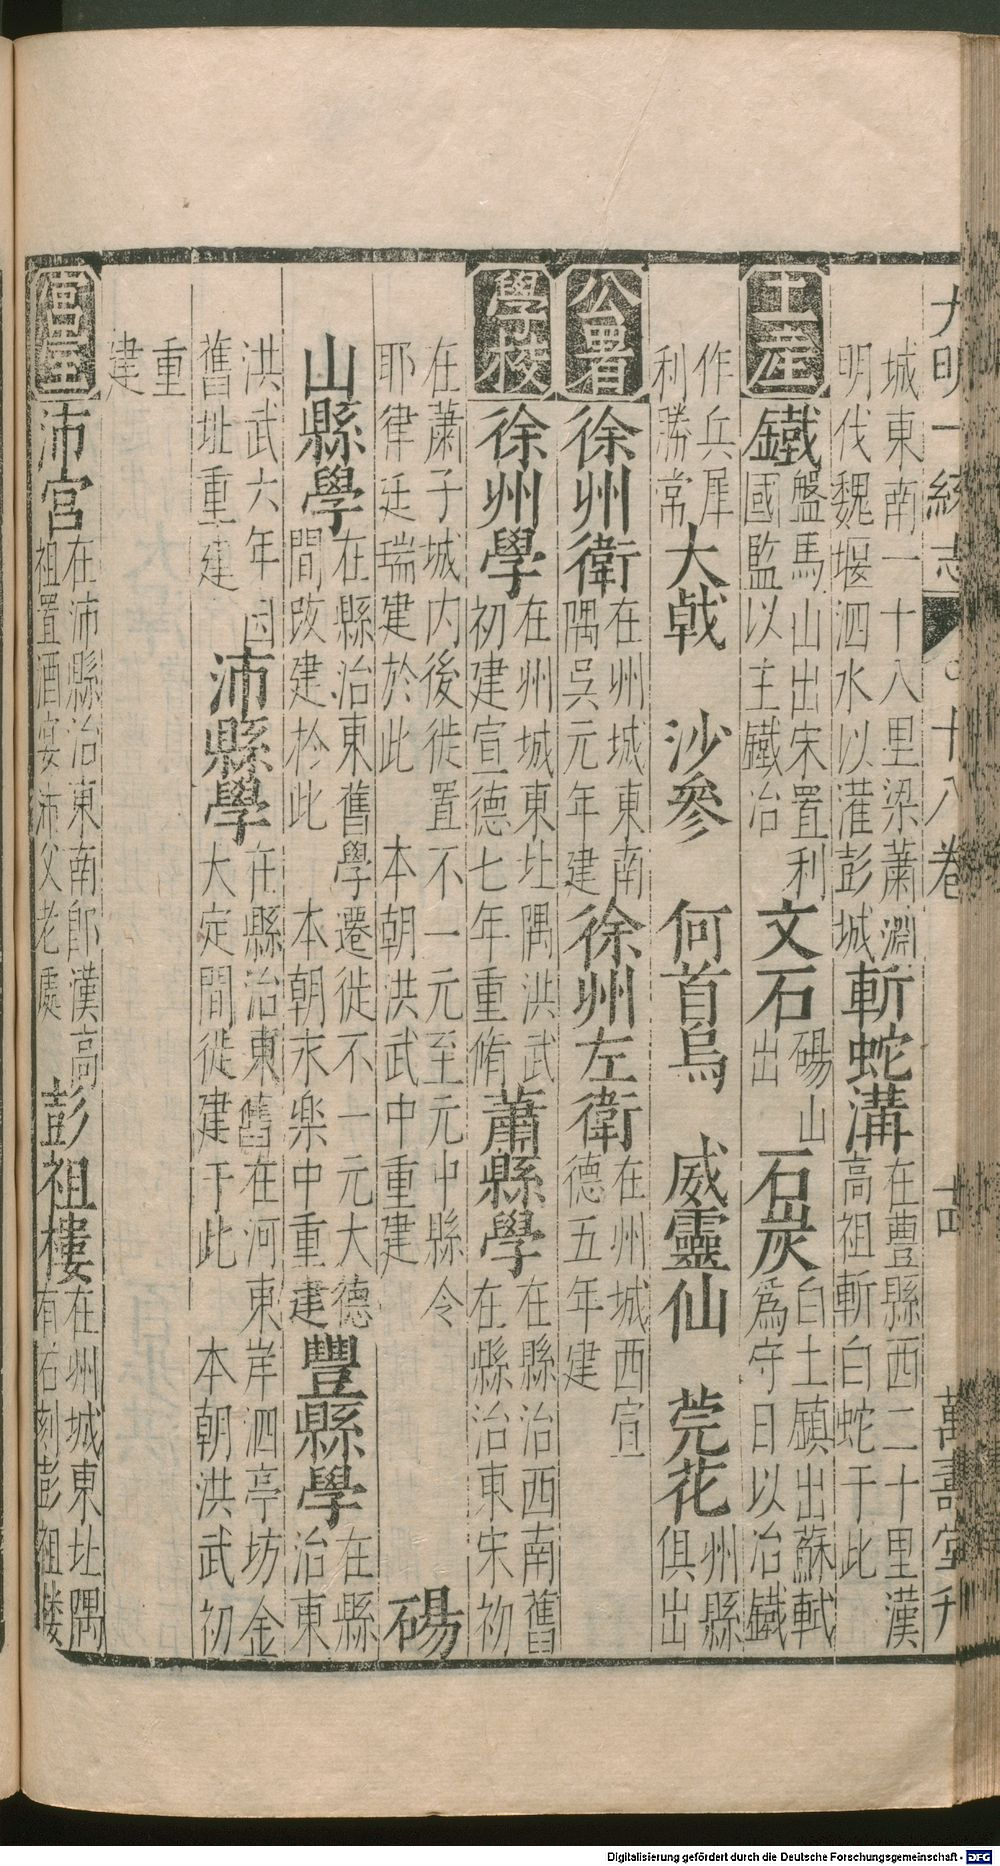 大明一統志 十八卷 萬壽堂刊
城東南一十八里梁蕭淵明伐魏堰泗水以灌彭城 斬蛇溝 在豊縣西二十里漢高祖斬白蛇于此
土産 鐵 盤馬山出宋置利國監以主鐵冶 文石 碭山出 石炭 白土鎮出蘇軾爲守日以冶鐵
作兵犀利勝常 大戟 沙參 何首烏 威靈仙 莞花 州縣俱出
公署 徐州衛 在州城東南隅吳元年建 徐州左衛 在州城西宣德五年建
學校 徐州學 在州城東北隅洪武初建宣德七年重脩 蕭縣學 在縣治西南舊在縣治東宋初
在蕭子城内後徙置不一元至元中縣令耶律廷瑞建於此 本朝洪武中重建 碭
山縣學 在縣治東舊學遷徙不一元大德間改建於此 本朝永樂中重建 豐縣學 在縣治東
洪武六年因舊址重建 沛縣學 在縣治東舊在河東岸泗亭坊金大定間徙建于此 本朝洪武初
重建
宮室 沛宮 在沛縣治東南卽漢高祖置酒宴沛父老處 彭祖樓 在州城東北隅有石刻彭祖樓
Digitalisierung gefördert durch die Deutsche Forschungsgemeinschaft - DFG